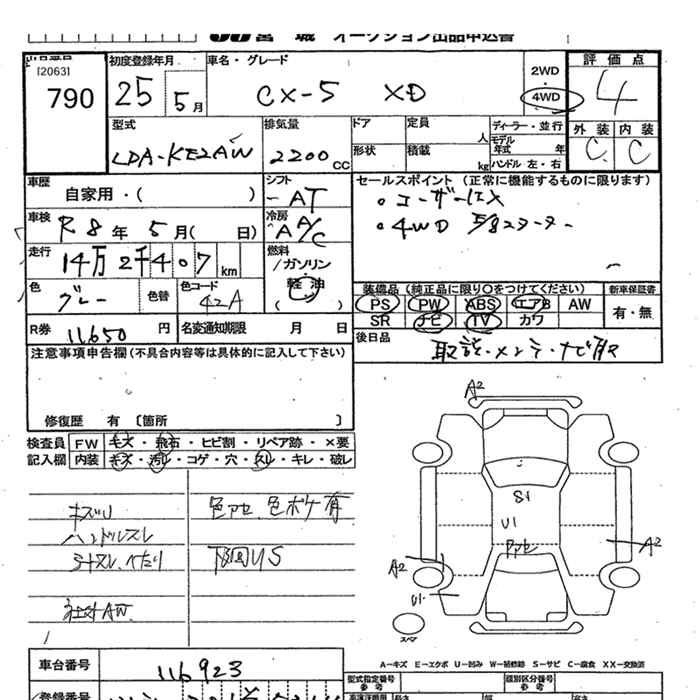 宮 城 オークション出品申込書
出品番号
[2063]
790
初度登録年月
25 5月
車名・グレード
CX-5 XD
2WD
・
4WD
評価点
4
型式
LDA-KE2AW
排気量
2200cc
ドア
形状
定員
人
積載
kg
ディーラー・並行
モデル年式 年
ハンドル 左・右
外装 内装
C C
車歴
自家用・( )
シフト
AT
車検
R8年 5月( 日)
冷房
AA/C
走行
14万2千407km
燃料
ガソリン
軽油
( )
色
グレー
色替
色コード
42A
R券
11650円
名変通知期限 月 日
セールスポイント(正常に機能するものに限ります)
。ユーザー
。4WD
装備品(純正品に限り○をつけてください)
PS PW ABS エアB AW
SR ナビ TV カワ
新車保証書
有・無
後日品
取説・メンテ・ナビ
注意事項申告欄(不具合内容等は具体的に記入して下さい)
修復歴 有 〔箇所 〕
検査員記入欄
FW キズ・飛石・ヒビ割・リペア跡・×要
内装 キズ・汚れ・コゲ・穴・スレ・キレ・破レ
キズU
ハンドルスレ
シートスレ、へたり
社外AW
色アセ、色ボケ有
下回US
A2
S1
U1
アセ
A2
A2
U1
スペア
A-キズ E-エクボ U-凹み W-補修跡 S-サビ C-腐食 XX-交換済
車台番号
116923
登録番号
型式指定番号
参考
類別区分番号
参考